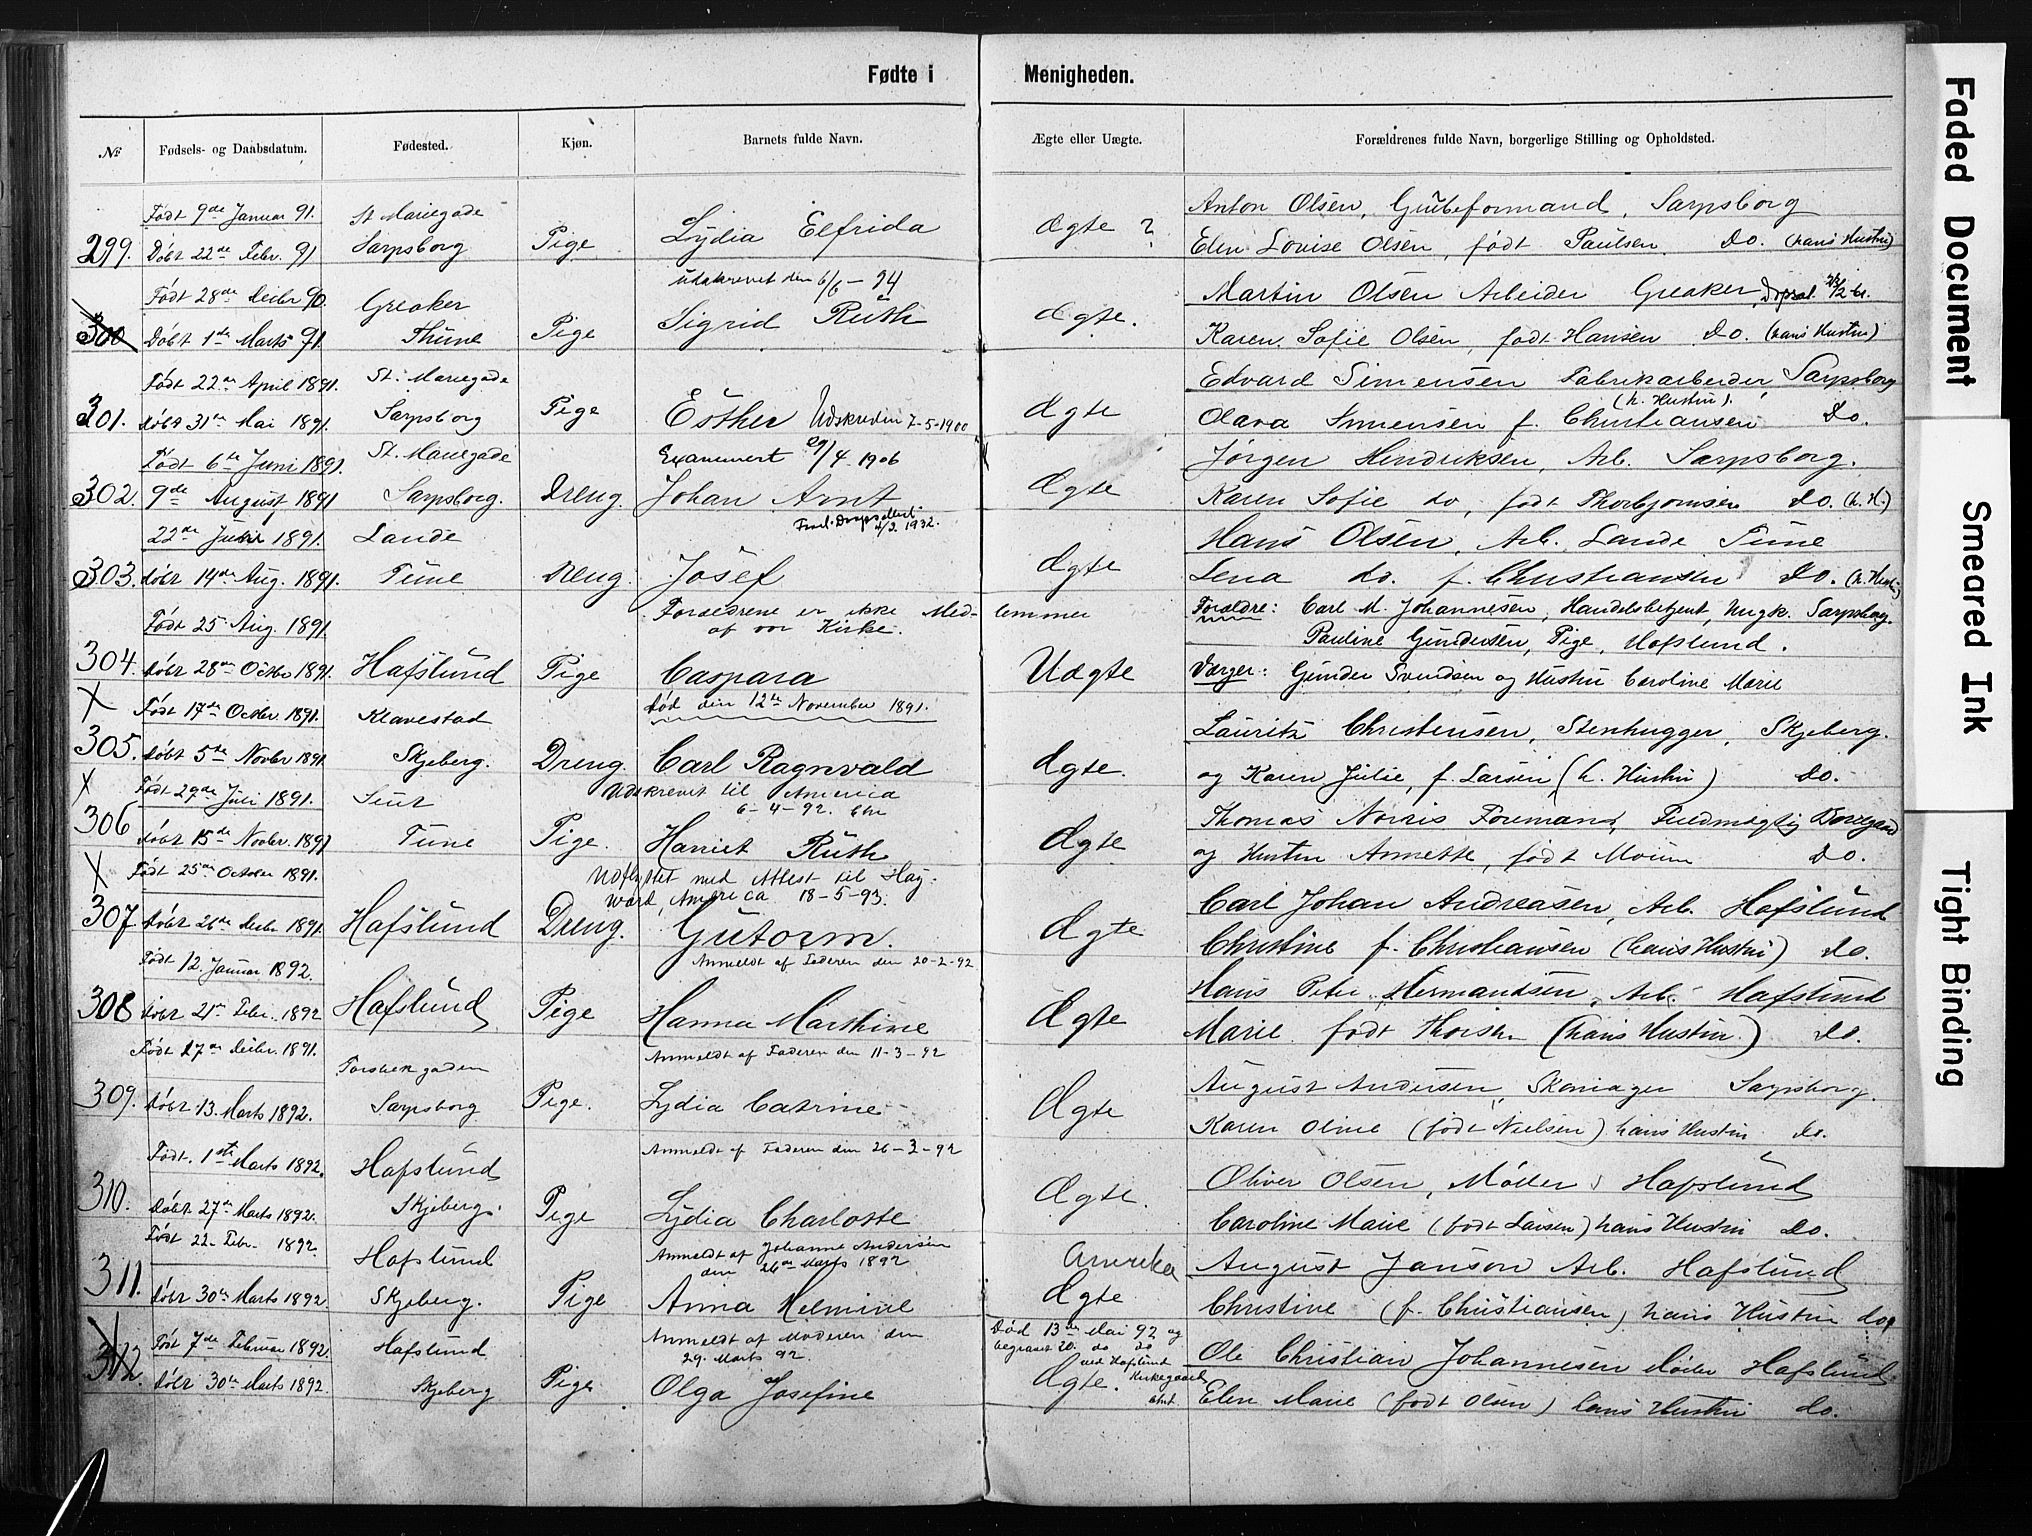 Fødte i Menigheden.
No Fødsels- og Daabsdatum. Fødested. Kjøn. Barnets fulde Navn. Ægte eller Uægte. Forældrenes fulde Navn, borgerlige Stilling og Opholdsted.
Født 9de Januar 91. St. Mariegade Anton Olsen, Grubeformand, Sarpsborg
299. Døbt 22de Febr. 91 Sarpsborg Pige Lydia Elfrida Ægte ? Elen Lovise Olsen, født Paulsen Do. (hans Hustru)
udskrevet den 6/6-94
Født 28de Decbr 90. Greaker Martin Olsen Arbeider Greaker
300 Døbt 1de Marts 91. Thune Pige Sigrid Ruth Ægte. Karen Sofie Olsen, født Hansen Do. (hans Hustru)
Født 22de April 1891. St. Mariegade Edvard Simensen Fabrikarbeider, Sarpsborg
(h. Hustru).
301. Døbt 31te Mai 1891. Sarpsborg Pige Esther Udskreden 7-5-1900 Ægte Olava Simensen f. Christiansen Do.
Født 6te Juni 1891. St. Mariegade Examinert /4 1906 Jørgen Hendriksen, Arb. Sarpsborg.
302. 9de August 1891 Sarpsborg. Dreng. Johan Arnt Ægte Karen Sofie do, født Thorbjørnsen Do. (h. H.)
/2. 1932.
22de 1891. Lande Hans Olsen, Arb. Lande Tune
303. Døbt 14de Aug. 1891. Tune Dreng. Josef Ægte Lena do. f. Christiansen Do. (h. Hust.)
Forældrene er ikke Medlemmer
af vor Kirke.
Født 25 Aug. 1891. Forældre: Carl M. Johannesen, Handelsbetjent, Ungk. Sarpsborg.
Pauline Gundersen, Pige, Hafslund.
304. Døbt 28de Octbr 1891. Hafslund Pige Caspara Uægte Værger: Gunder Svendsen og Hustru Caroline Marie
Død den 12te November 1891.
X Født 17de Octbr. 1891. Klavestad Lauritz Christensen, Stenhugger, Skjeberg.
305. Døbt 5te Novbr 1891 Skjeberg. Dreng. Carl Ragnvald Ægte. og Karen Julie, f. Larsen (h. Hustru) Do.
Udskrevet til America
6-4-92.
X Født 29de Juli 1891. Thomas Norris Foremand, Fuldmægtig Borregaard
306 Døbt 15de Novbr. 1891 Tune Pige. Harriet Ruth Ægte og Hustru Annette, født Moum Do.
Udflyttet med Attest til Hayward,
America 18-5-93.
X Født 25de October 1891. Carl Johan Andreasen, Arb. Hafslund
307. Døbt 26de Decbr. 1891. Hafslund Dreng. Gutorm. Ægte Christine f. Christiansen (hans Hustru) Do.
Anmeldt af Faderen den 20-2-92
Født 12. Januar 1892. Hans Peter Hermandsen, Arb. Hafslund
308 Døbt 21de Febr. 1892 Hafslund Pige Hanna Marthine Ægte Marie født (hans Hustru.) Do.
Anmeldt af Faderen den 11-3-92
Født 27de Decbr. 1891. Torsbekgaden August Andersen, Skomager Sarpsborg.
309. Døbt 13. Marts 1892. Sarpsborg Pige. Lydia Catrine Ægte Karen Oline (født Nielsen) hans Hustru Do.
Anmeldt af Faderen den 26-3-92
Født. 1ste Marts 1892. Hafslund Oliver Olsen, Møller, Hafslund
310. Døbt 27de Marts 1892. Skjeberg. Pige Lydia Charlotte Ægte. Caroline Marie (født Larsen) hans Hustru Do.
Født 22 Febr. 1892. Hafslund Anmeldt af Johanne Andersen Amerika August Janson Arb. Hafslund
den 26de Marts 1892
311. Døbt 30te Marts 1892. Skjeberg. Pige Anna Helmine Ægte Christine (f. Christiansen) hans Hustru do
Født 7de Februar 1892. Hafslund Anmeldt af Moderen den Død 13de Mai 92 og Ole Christian Johannesen Møller Hafslund
29. Marts 92. begravet 20. do do
ved Hafslund
312. Døbt 30te Marts 1892. Skjeberg Pige Olga Josefine Ægte. Kirkegaard Elen Marie (født Olsen) hans Hustru do.
Faded Document
Smeared Ink
Tight Binding